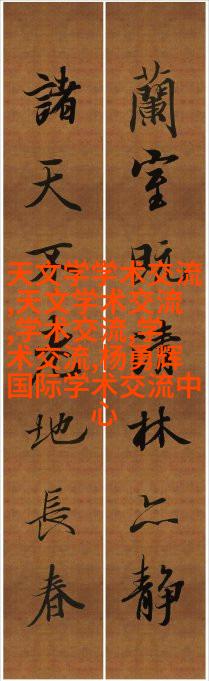 蘭室既清林亦静
諸天不老地長春
天文学学术交流
,天文学术交流
,学术交流,学
术交流,杨勇辉
国际学术交流中
心